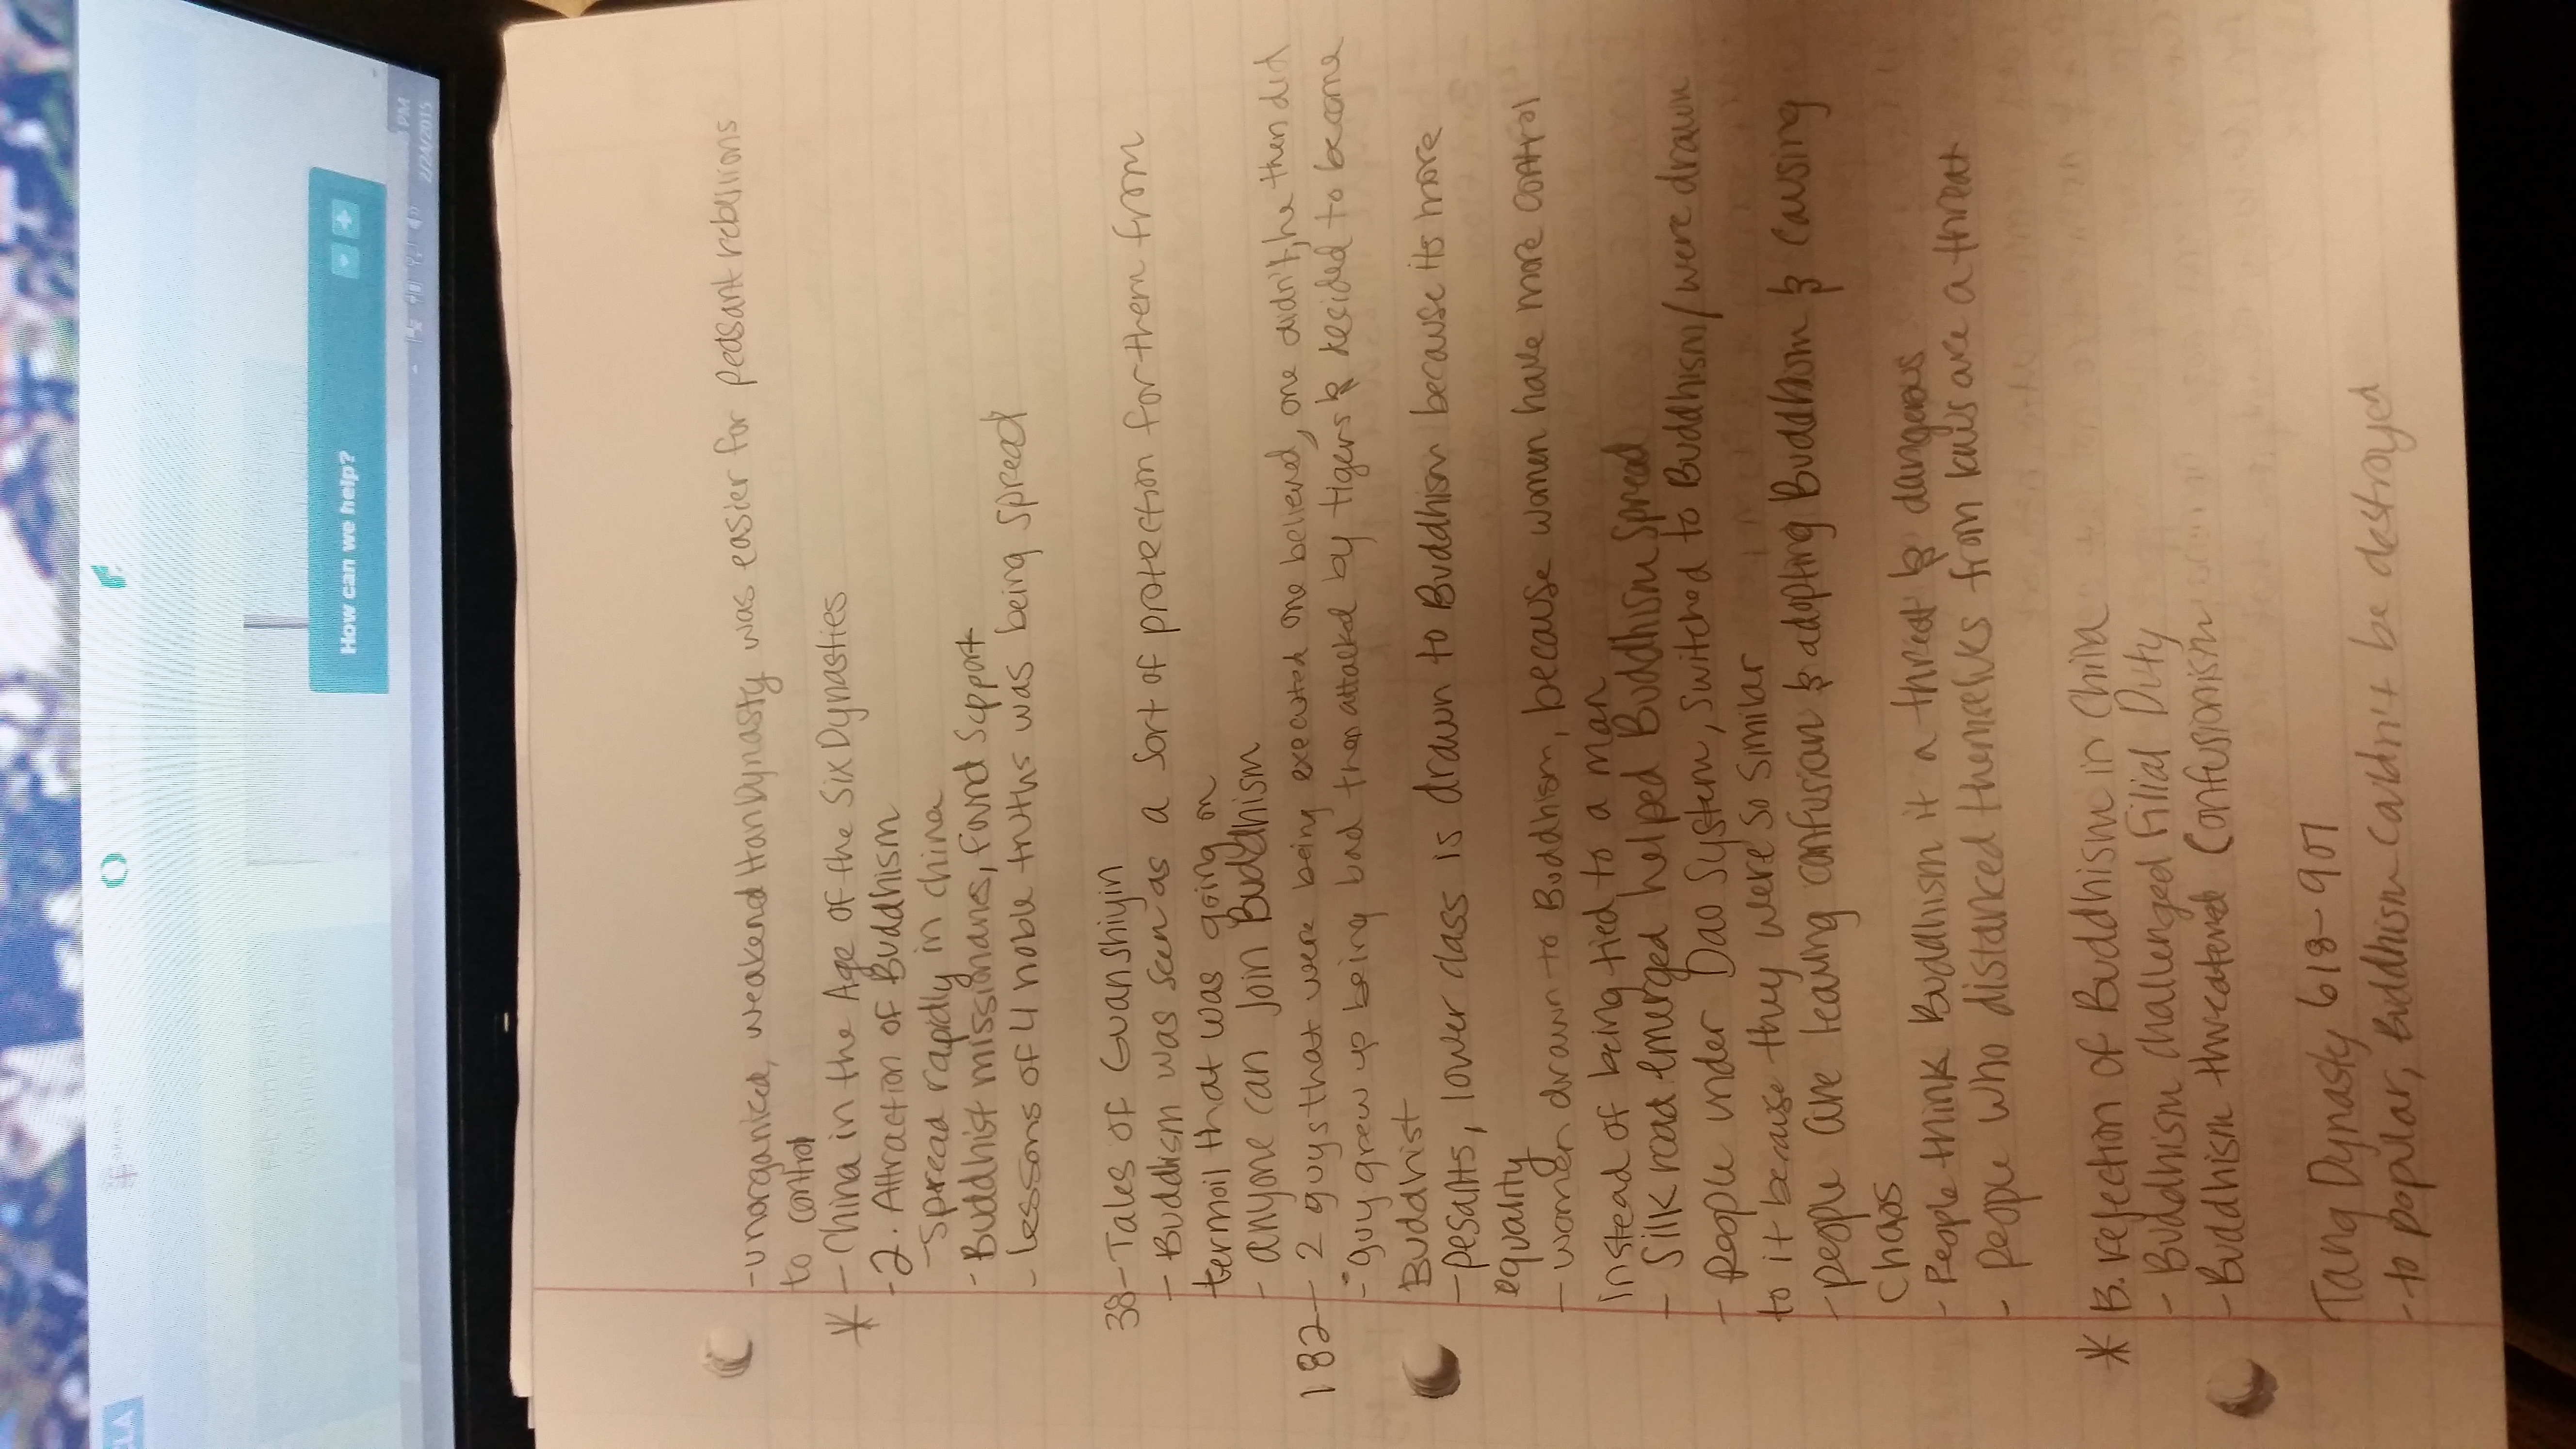 How can we help?
PM
2/24/2015
-unorganized, weakend Han Dynasty was easier for peasant rebellions
to control
* - China in the Age of the Six Dynasties
- 2. Attraction of Buddhism
- Spread rapidly in china
- Buddhist missionaries, found support
- lessons of 4 noble truths was being spread
38 - Tales of Guanshiyin
- Buddhism was seen as a sort of protection for them from
termoil that was going on
- anyone can join Buddhism
182 - 2 guys that were being executed one believed, one didn't, he then did
- guy grew up being bad then attacked by tigers & decided to become
Buddhist
- pesants, lower class is drawn to Buddhism because its more
equality
- women drawn to Buddhism, because women have more control
instead of being tied to a man
- Silk road emerged helped Buddhism spread
- people under Dao system, switched to Buddhism/were drawn
to it because they were so similar
- people are leaving confusian & adopting Buddhism & causing
chaos
- People think Buddhism it a threat & dangerous
- people who distanced themselves from are a threat
* B. rejection of Buddhism in China
- Buddhism challenged Filial Duty
- Buddhism threatened Confusionism
Tang Dynasty 618-907
- to popular, Buddhism couldn't be destroyed